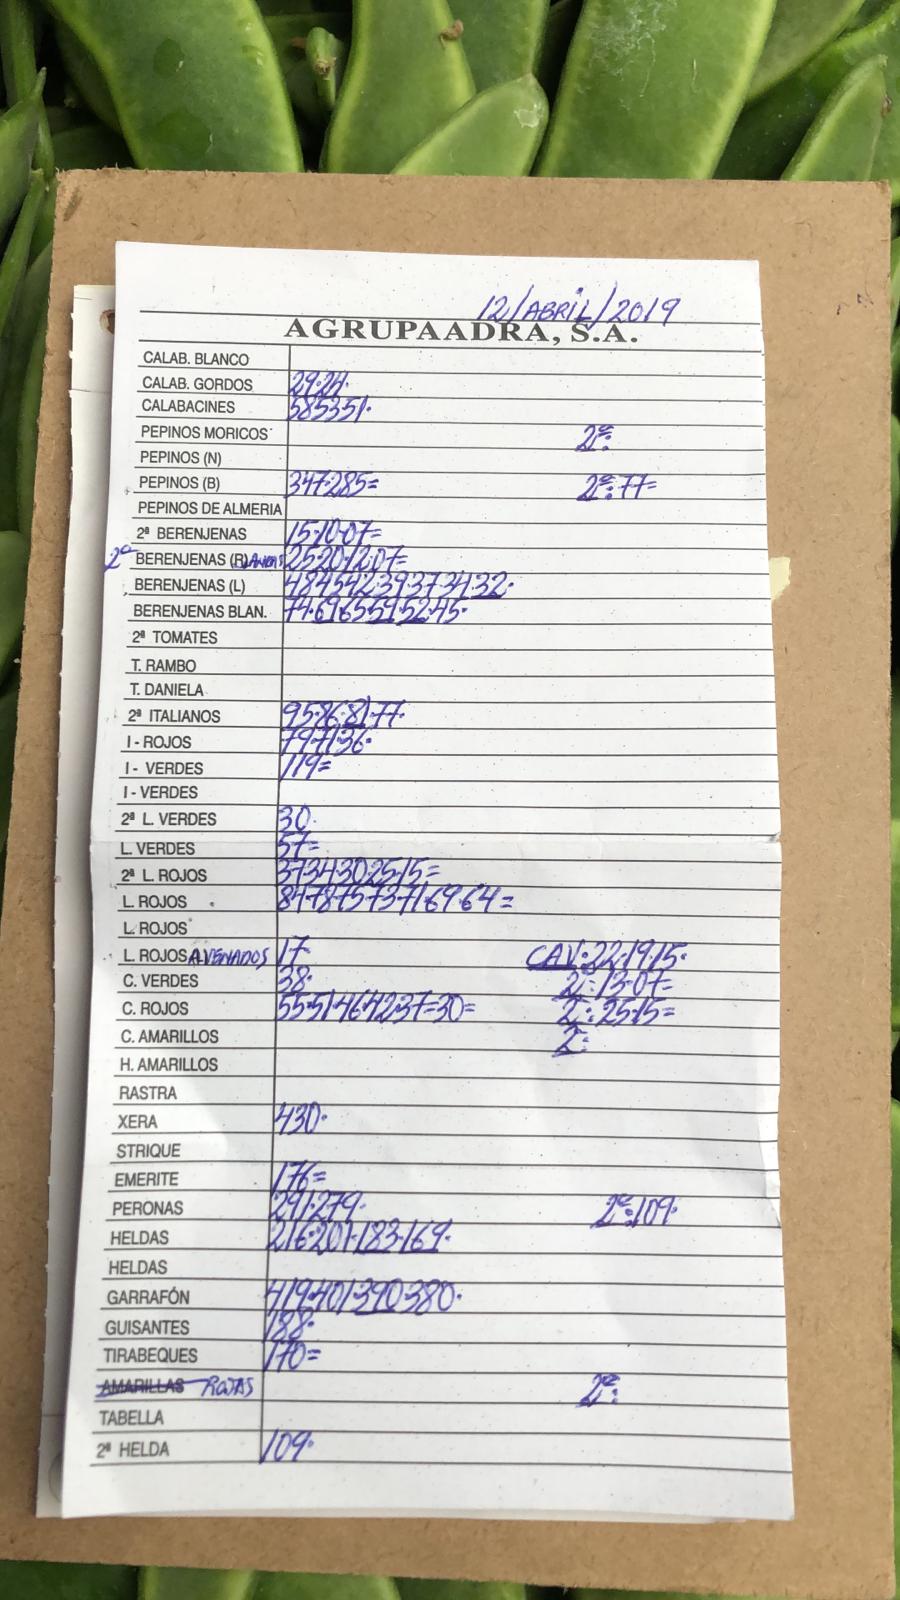 12/ABRIL/2019
AGRUPAADRA, S.A.
CALAB. BLANCO
CALAB. GORDOS 29·24·
CALABACINES 585351·
PEPINOS MORICOS 2ª:
PEPINOS (N)
PEPINOS (B) 347·285= 2ª:77=
PEPINOS DE ALMERIA
2ª BERENJENAS 15·10·07=
2ª BERENJENAS (R) 25·20·12·07=
BERENJENAS (L) 484542·39·37·34·32·
BERENJENAS BLAN. 74·69·65·59·52·45·
2ª TOMATES
T. RAMBO
T. DANIELA
2ª ITALIANOS 95·86·81·77·
I - ROJOS 79·71·36·
I - VERDES 119=
I - VERDES
2ª L. VERDES 30·
L. VERDES 57=
2ª L. ROJOS 37·34·30·25·15=
L. ROJOS 84·78·75·73·71·69·64=
L. ROJOS
L. ROJOS AVENADOS 17· CAV·22·19·15·
C. VERDES 38· 2ª:13·07=
C. ROJOS 55·51·46·42·37=30= 2ª:25·15=
C. AMARILLOS 2ª:
H. AMARILLOS
RASTRA
XERA 430·
STRIQUE
EMERITE 176=
PERONAS 291·279· 2ª:109·
HELDAS 216·201·183·169·
HELDAS
GARRAFÓN 419·401·390·380·
GUISANTES 188·
TIRABEQUES 170=
AMARILLAS ROJAS 2ª:
TABELLA
2ª HELDA 109·